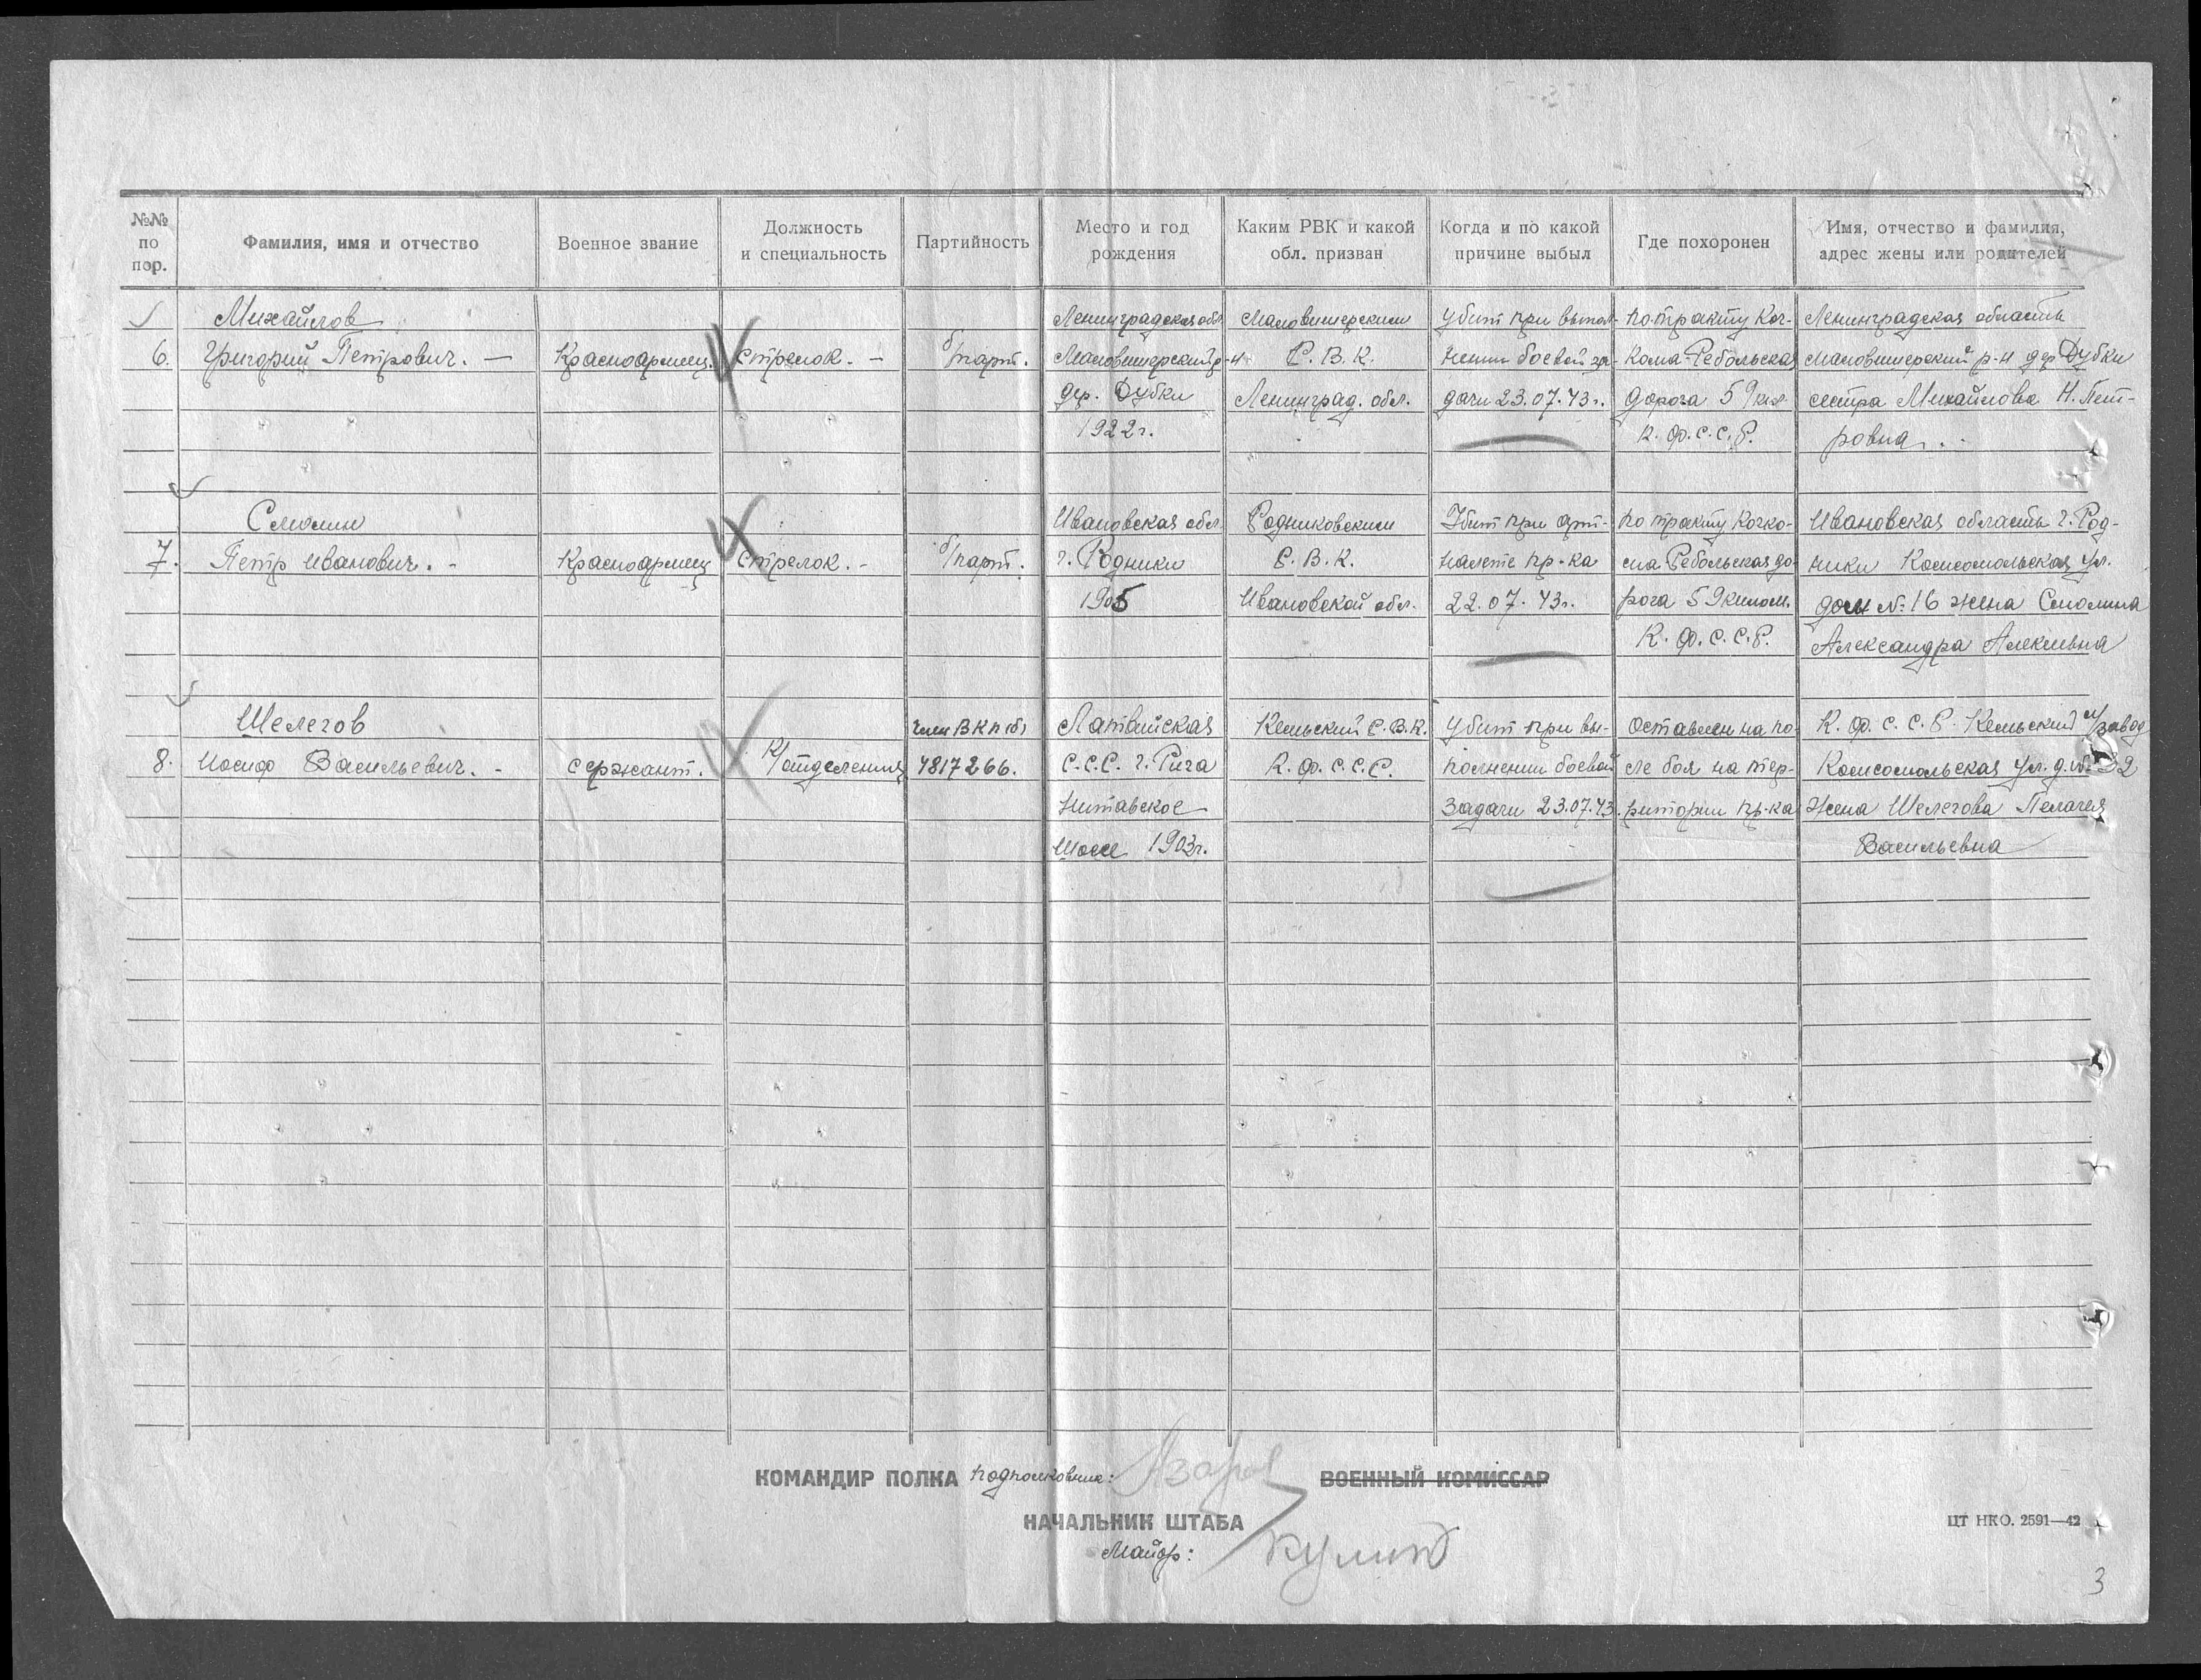 №№ по пор.
Фамилия, имя и отчество
Военное звание
Должность и специальность
Партийность
Место и год рождения
Каким РВК и какой обл. призван
Когда и по какой причине выбыл
Где похоронен
Имя, отчество и фамилия, адрес жены или родителей
6.
Михайлов
Григорий Петрович. —
Красноармеец.
Стрелок. —
б/парт.
Ленинградская обл.
Маловишерский р-н
дер. Дубки
1922 г.
Маловишерским
Р. В. К.
Ленинград. обл.
Убит при выпол-
нении боевой за-
дачи 23.07.43 г.
По тракту Коч-
кома-Ребольская
дорога 59 км
К. Ф. С. С. Р.
Ленинградская область
Маловишерский р-н дер Дубки
сестра Михайлова Н. Пет-
ровна.
7.
Смолин
Петр Иванович. -
Красноармеец
Стрелок. -
б/парт.
Ивановская обл.
г. Родники
1905
Родниковским
Р. В. К.
Ивановской обл.
Убит при арт-
налете пр-ка
22.07.43 г.
По тракту Кочко-
ма Ребольская до-
рога 59 килом.
К. Ф. С. С. Р.
Ивановская область г. Род-
ники Комсомольская ул.
дом № 16 жена Смолина
Александра Алексеевна
8.
Шелегов
Иосиф Васильевич. -
сержант.
К/отделения
член ВКП(б)
4817266.
Латвийская
С.С.С. г. Рига
Нитавское
шоссе 1903 г.
Кемьский Р.В.К.
К. Ф. С. С. С.
Убит при вы-
полнении боевой
задачи 23.07.43.
Оставлен на по-
ле боя на тер-
ритории пр-ка
К. Ф. С. С. Р. Кемьский л/завод
Комсомольская ул. д. № 32
Жена Шелегова Пелагея
Васильевна
КОМАНДИР ПОЛКА подполковник: Азаров
ВОЕННЫЙ КОМИССАР
НАЧАЛЬНИК ШТАБА
Майор:
ЦТ НКО. 2591—42
3